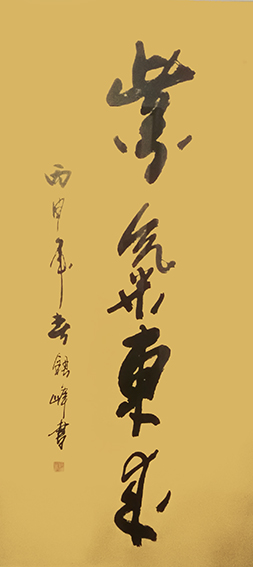 紫氣東來
丙申年春峰書